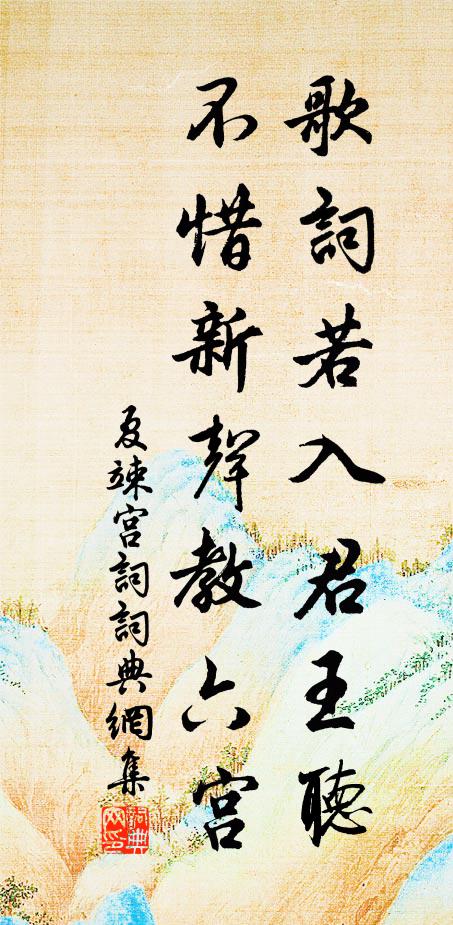 歌詞若入君王聽
不惜新聲教六宮
夏竦宮詞詞典網集
詞典